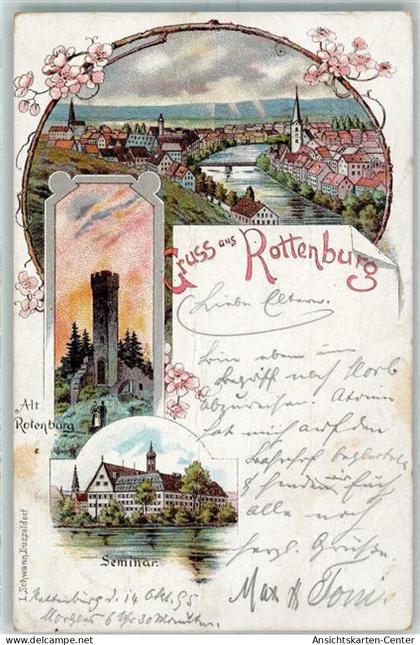 Gruss aus Rottenburg
Liebe Eltern.
Bin eben im
Begriff nach Horb
abzureisen.
hat mich auf den
Bahnhof begleitet
& senden wir Euch
alle noch
herzl. Grüsse
Max & Toni.
Alt
Rotenburg
Seminar.
L. Schwann, Düsseldorf
Rottenburg d. 14 Okt. 95
Morgens 6 Uhr 30 Minuten.
(c) delcampe.net
Ansichtskarten-Center